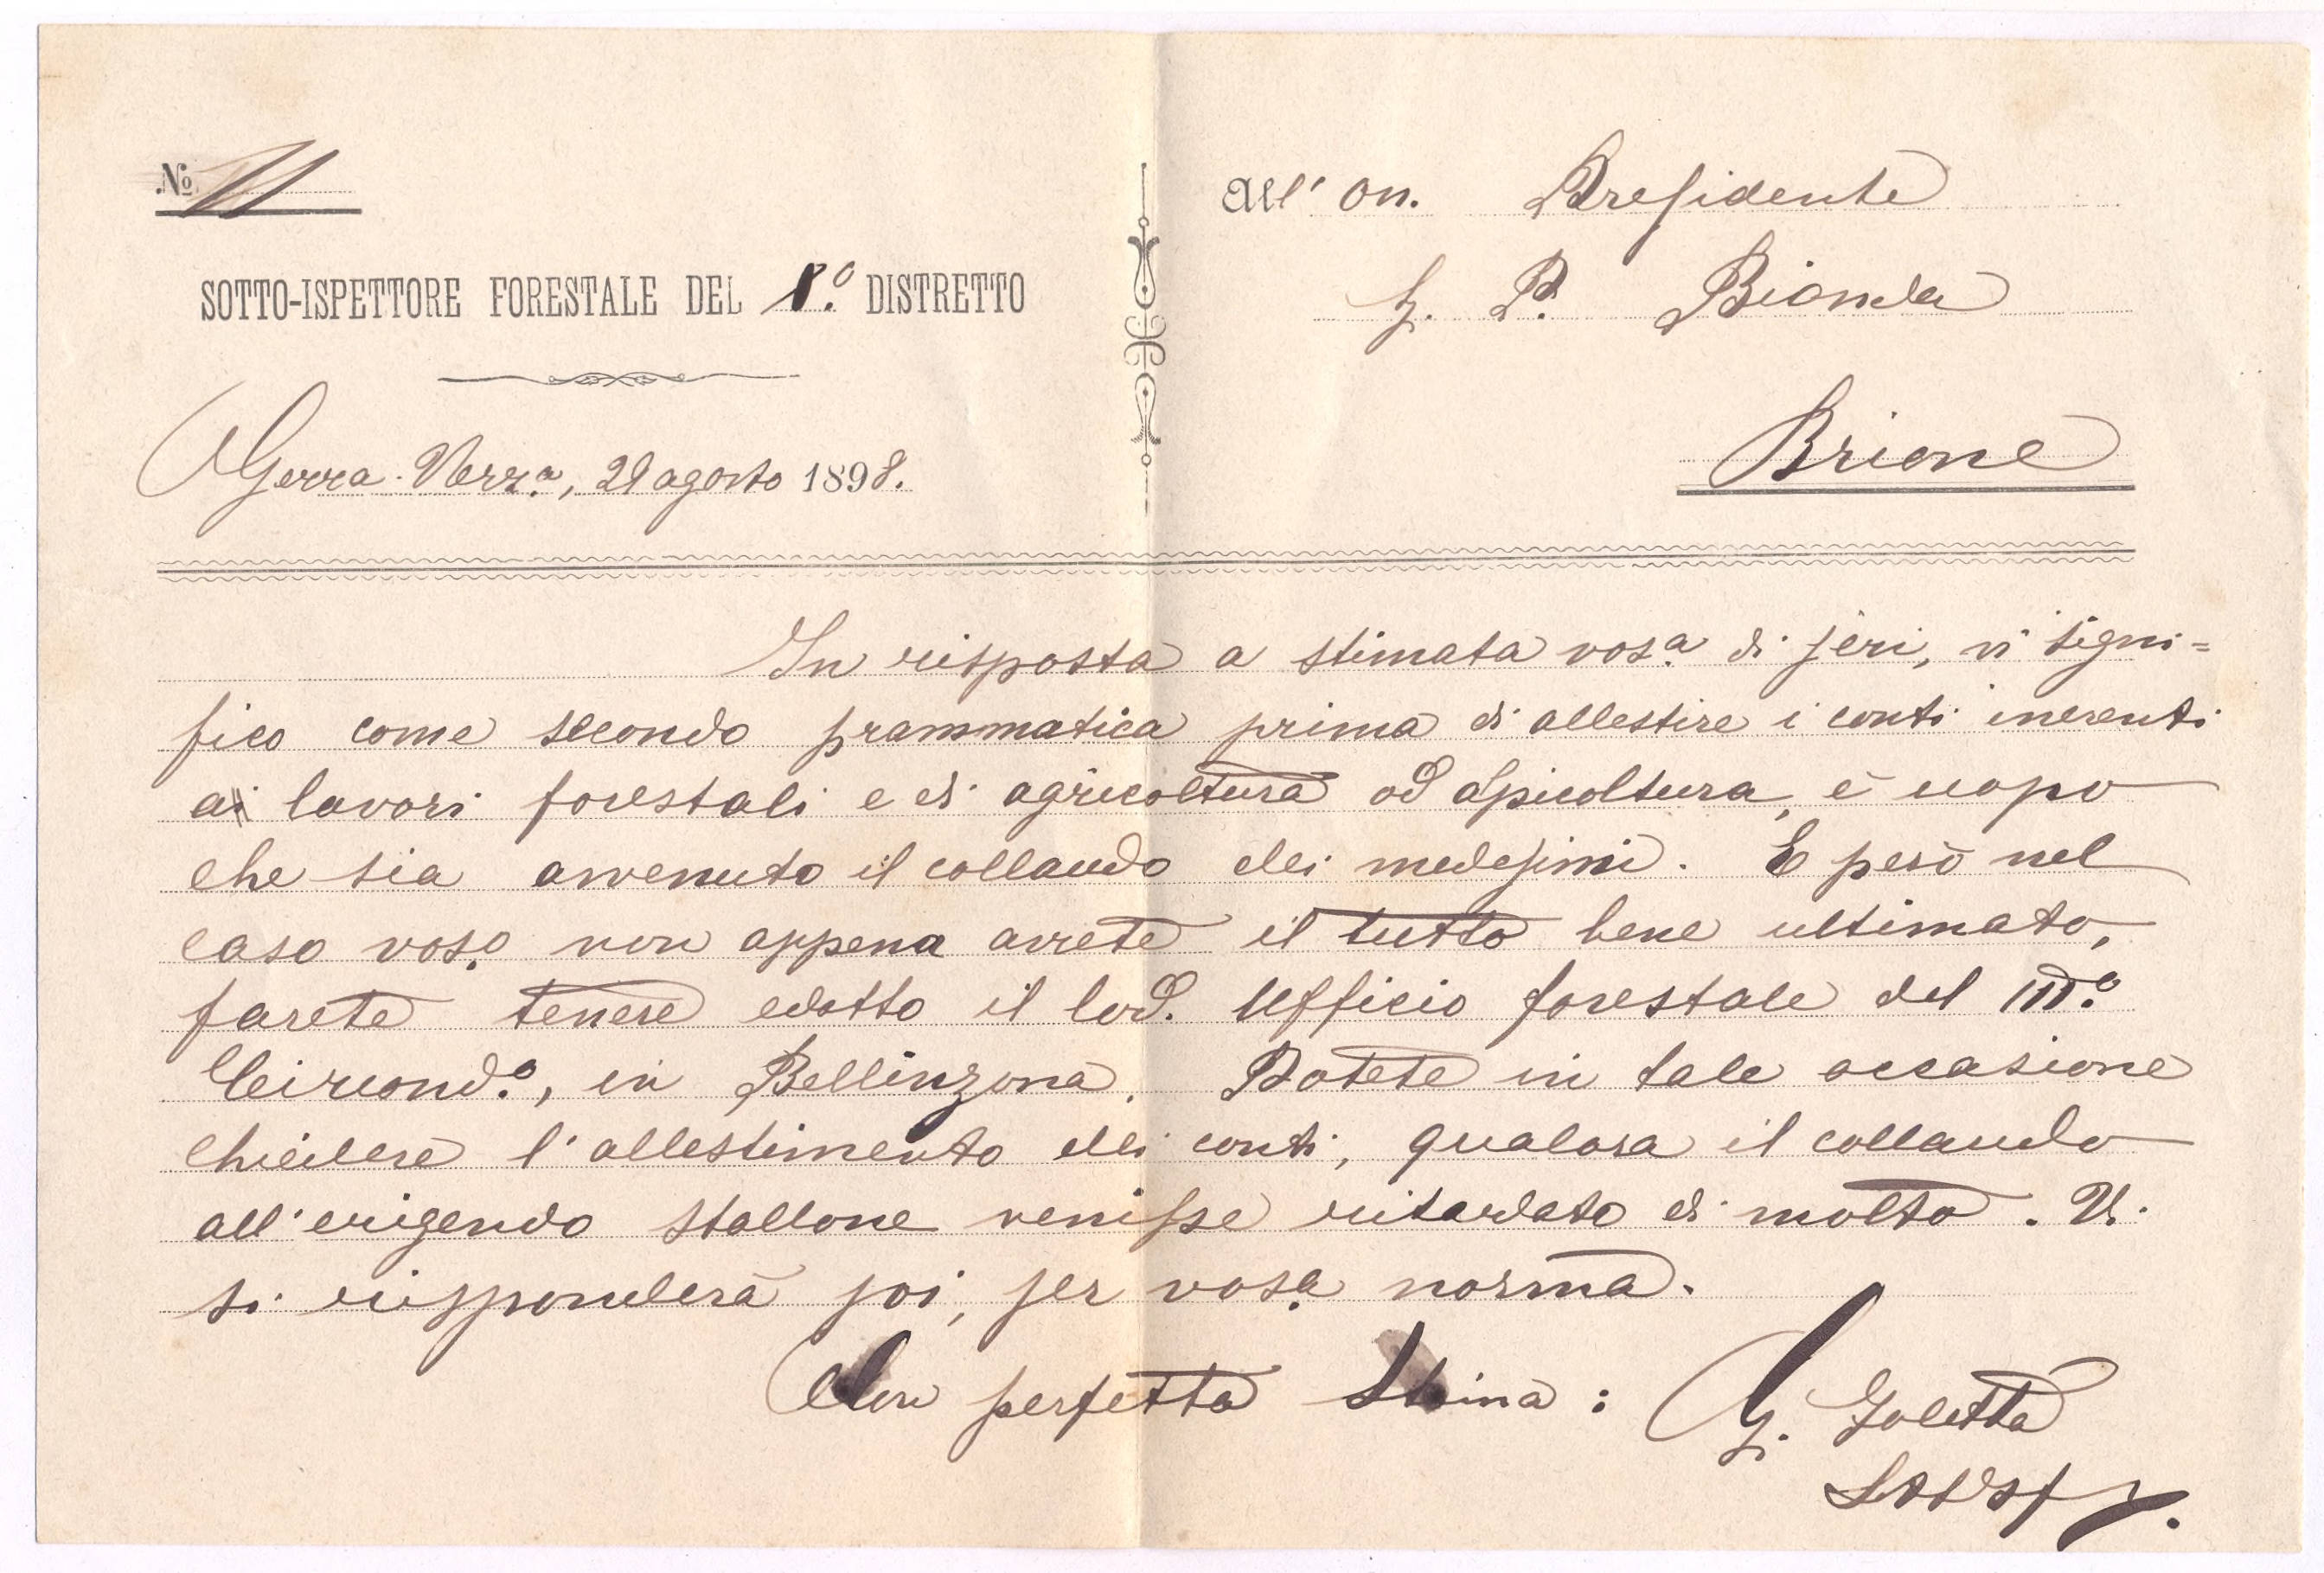 No. 11
SOTTO-ISPETTORE FORESTALE DEL 8.º DISTRETTO
Gerra-Verz.a, 29 agosto 1898.
All' On. Presidente
G. P. Bionda
Brione
In risposta a stimata vos.a di jeri, vi signi=
fico come secondo prammatica prima di allestire i conti inerenti
ai lavori forestali e di agricoltura od alpicoltura, è uopo
che sia avvenuto il collaudo dei medesimi. E però nel
caso vos.o non appena avrete il tutto bene ultimato,
farete tenere edotto il lod. Ufficio forestale del III.º
Circond.º, in Bellinzona. Potete in tale occasione
chiedere l'allestimento dei conti, qualora il collaudo
all'erigendo stallone venisse ritardato di molto. Vi
si risponderà poi, per vos.a norma.
Con perfetta stima: G. Goletta